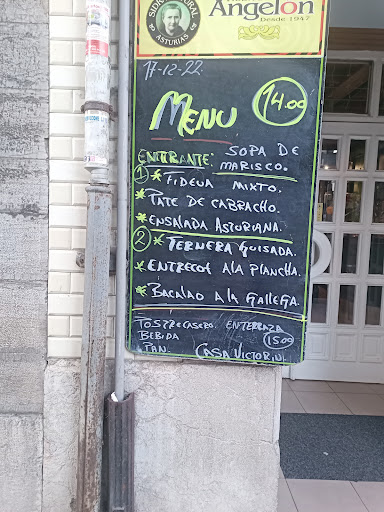 SIDRA NATURAL
ASTURIAS
Angelón
Desde 1947
17-12-22.
MENU 14.00
ENTRANTE: SOPA DE
MARISCO.
1 * FIDEUA MIXTO.
* PATE DE CABRACHO.
* ENSALADA ASTURIANA.
2 * TERNERA GUISADA.
* ENTRECOT A LA PLANCHA.
* BACALAO A LA GALLEGA.
POSTRE CASERO. EN TERRAZA
BEBIDA 15.00
PAN. CASA VICTORIN